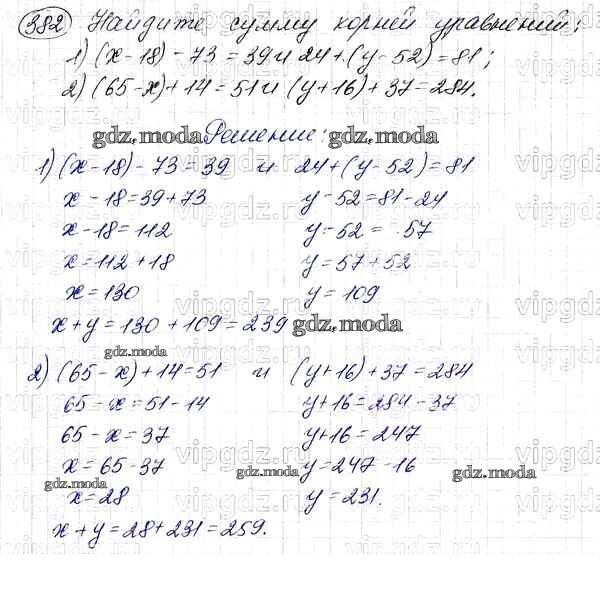 382 Найдите сумму корней уравнений:
1) (x-18)-73=39 и 24+(y-52)=81;
2) (65-x)+14=51 и (y+16)+37=284.
gdz.moda Решение: gdz.moda
1) (x-18)-73=39 и 24+(y-52)=81
x-18=39+73 y-52=81-24
x-18=112 y-52=57
x=112+18 y=57+52
x=130 y=109
x+y=130+109=239 gdz.moda
gdz.moda
2) (65-x)+14=51 и (y+16)+37=284
65-x=51-14 y+16=284-37
65-x=37 y+16=247
x=65-37 gdz.moda y=247-16 gdz.moda
gdz.moda
x=28 y=231.
x+y=28+231=259.